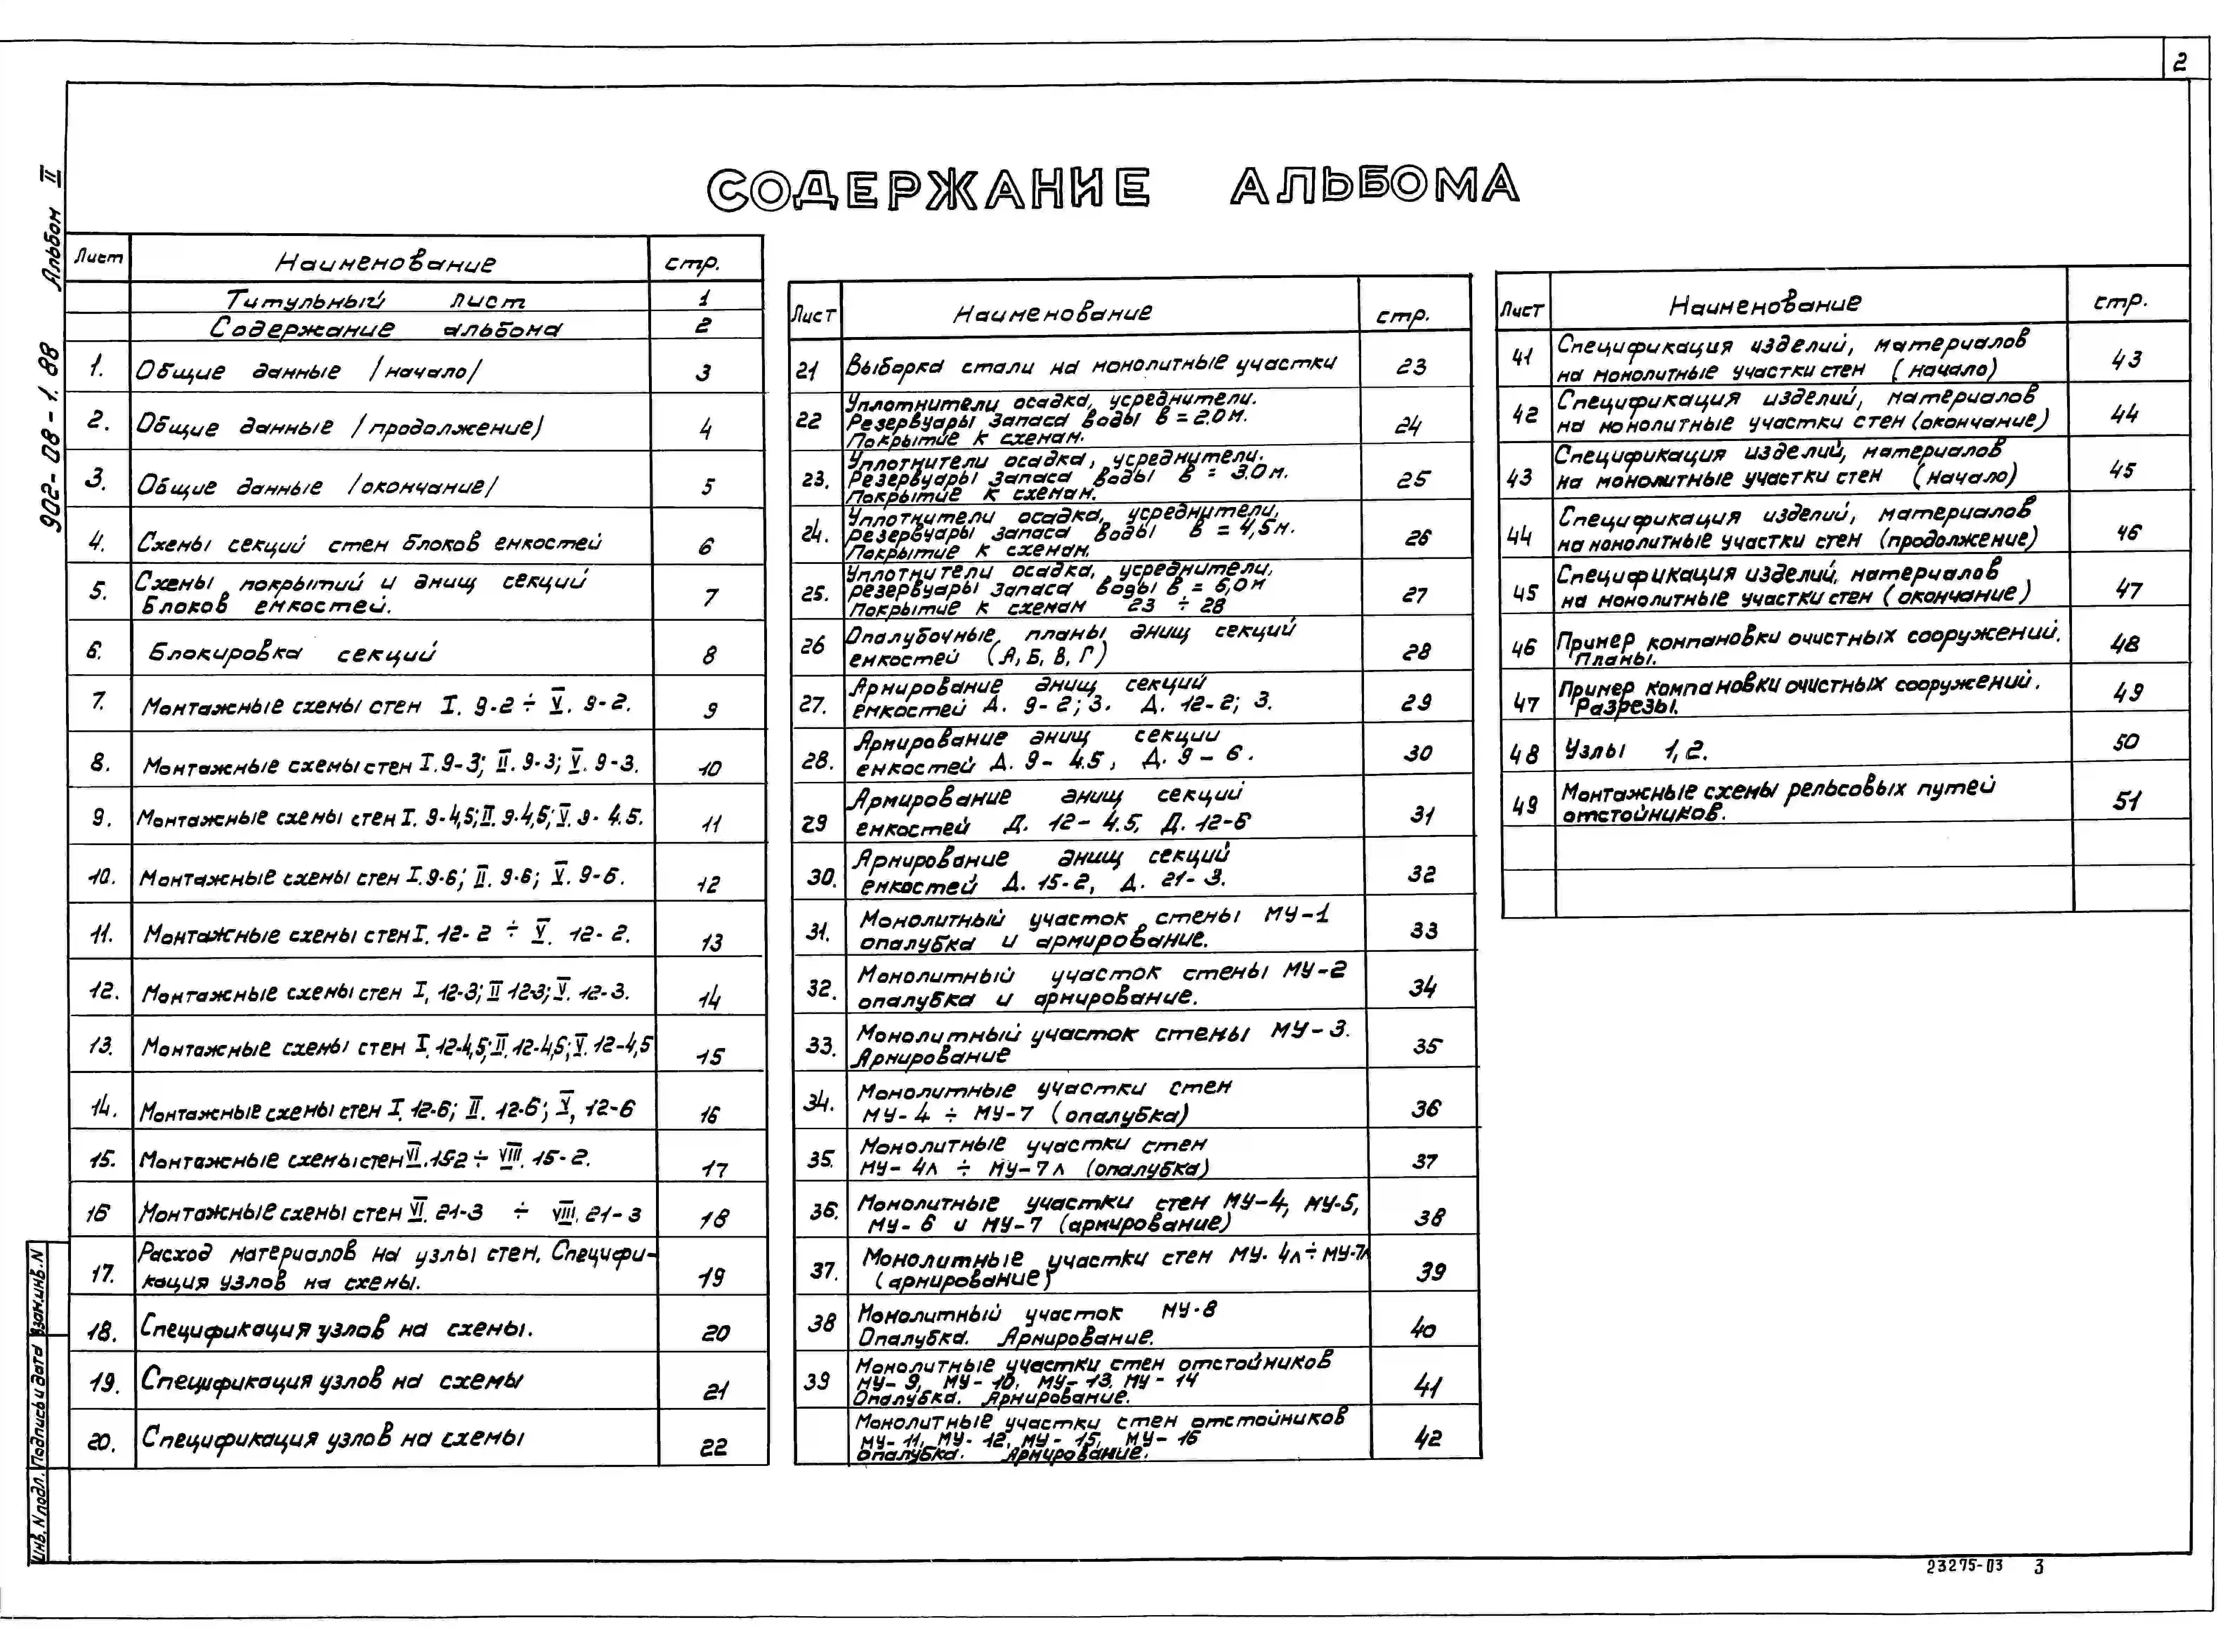 2
902-08-1.88 Альбом II
СОДЕРЖАНИЕ АЛЬБОМА
Лист Наименование стр.
Титульный лист 1
Содержание альбома 2
1. Общие данные /начало/ 3
2. Общие данные /продолжение/ 4
3. Общие данные /окончание/ 5
4. Схемы секций стен блоков емкостей 6
5. Схемы покрытий и днищ секций
блоков емкостей. 7
6. Блокировка секций 8
7. Монтажные схемы стен I. 9-2 ÷ V. 9-2. 9
8. Монтажные схемы стен I.9-3; II. 9-3; V. 9-3. 10
9. Монтажные схемы стен I. 9-4,5; II. 9-4,5; V. 9-4.5. 11
10. Монтажные схемы стен I.9-6; II. 9-6; V. 9-6. 12
11. Монтажные схемы стен I. 12-2 ÷ V. 12-2. 13
12. Монтажные схемы стен I, 12-3; II 12-3; V. 12-3. 14
13. Монтажные схемы стен I. 12-4,5; II. 12-4,5; V. 12-4,5 15
14. Монтажные схемы стен I. 12-6; II. 12-6; V, 12-6 16
15. Монтажные схемы стен VI. 15-2 ÷ VIII. 15-2. 17
16 Монтажные схемы стен VI. 21-3 ÷ VIII. 21-3 18
17. Расход материалов на узлы стен. Специфи-
кация узлов на схемы. 19
18. Спецификация узлов на схемы. 20
19. Спецификация узлов на схемы 21
20. Спецификация узлов на схемы 22
Лист Наименование стр.
21 Выборка стали на монолитные участки 23
22 Уплотнители осадка, усреднители.
Резервуары запаса воды В = 2.0м.
Покрытие к схемам. 24
23. Уплотнители осадка, усреднители.
Резервуары запаса воды В = 3.0м.
Покрытие к схемам. 25
24. Уплотнители осадка, усреднители,
резервуары запаса воды В = 4,5м.
Покрытие к схемам. 26
25. Уплотнители осадка, усреднители,
резервуары запаса воды В = 6,0м
Покрытие к схемам 23 ÷ 28 27
26 Опалубочные планы днищ секций
емкостей (А, Б, В, Г) 28
27. Армирование днищ секций
емкостей Д. 9-2; 3. Д. 12-2; 3. 29
28. Армирование днищ секции
емкостей Д. 9-4.5, Д. 9-6. 30
29 Армирование днищ секций
емкостей Д. 12-4.5, Д. 12-6 31
30. Армирование днищ секций
емкостей Д. 15-2, Д. 21-3. 32
31. Монолитный участок стены МУ-1
опалубка и армирование. 33
32. Монолитный участок стены МУ-2
опалубка и армирование. 34
33. Монолитный участок стены МУ-3.
Армирование 35
34. Монолитные участки стен
МУ-4 ÷ МУ-7 (опалубка) 36
35. Монолитные участки стен
МУ-4л ÷ МУ-7л (опалубка) 37
36. Монолитные участки стен МУ-4, МУ-5,
МУ-6 и МУ-7 (армирование) 38
37. Монолитные участки стен МУ-4л ÷ МУ-7л
(армирование) 39
38 Монолитный участок МУ-8
Опалубка. Армирование. 40
39 Монолитные участки стен отстойников
МУ-9, МУ-10, МУ-13, МУ-14
Опалубка. Армирование. 41
Монолитные участки стен отстойников
МУ-11, МУ-12, МУ-15, МУ-16
опалубка. Армирование. 42
Лист Наименование стр.
41 Спецификация изделий, материалов
на монолитные участки стен (начало) 43
42 Спецификация изделий, материалов
на монолитные участки стен (окончание) 44
43 Спецификация изделий, материалов
на монолитные участки стен (начало) 45
44 Спецификация изделий, материалов
на монолитные участки стен (продолжение) 46
45 Спецификация изделий, материалов
на монолитные участки стен (окончание) 47
46 Пример компановки очистных сооружений.
Планы. 48
47 Пример компановки очистных сооружений.
Разрезы. 49
48 Узлы 1, 2. 50
49 Монтажные схемы рельсовых путей
отстойников. 51
Инв. N подл. Подпись и дата Взам.инв.N
23275-03 3